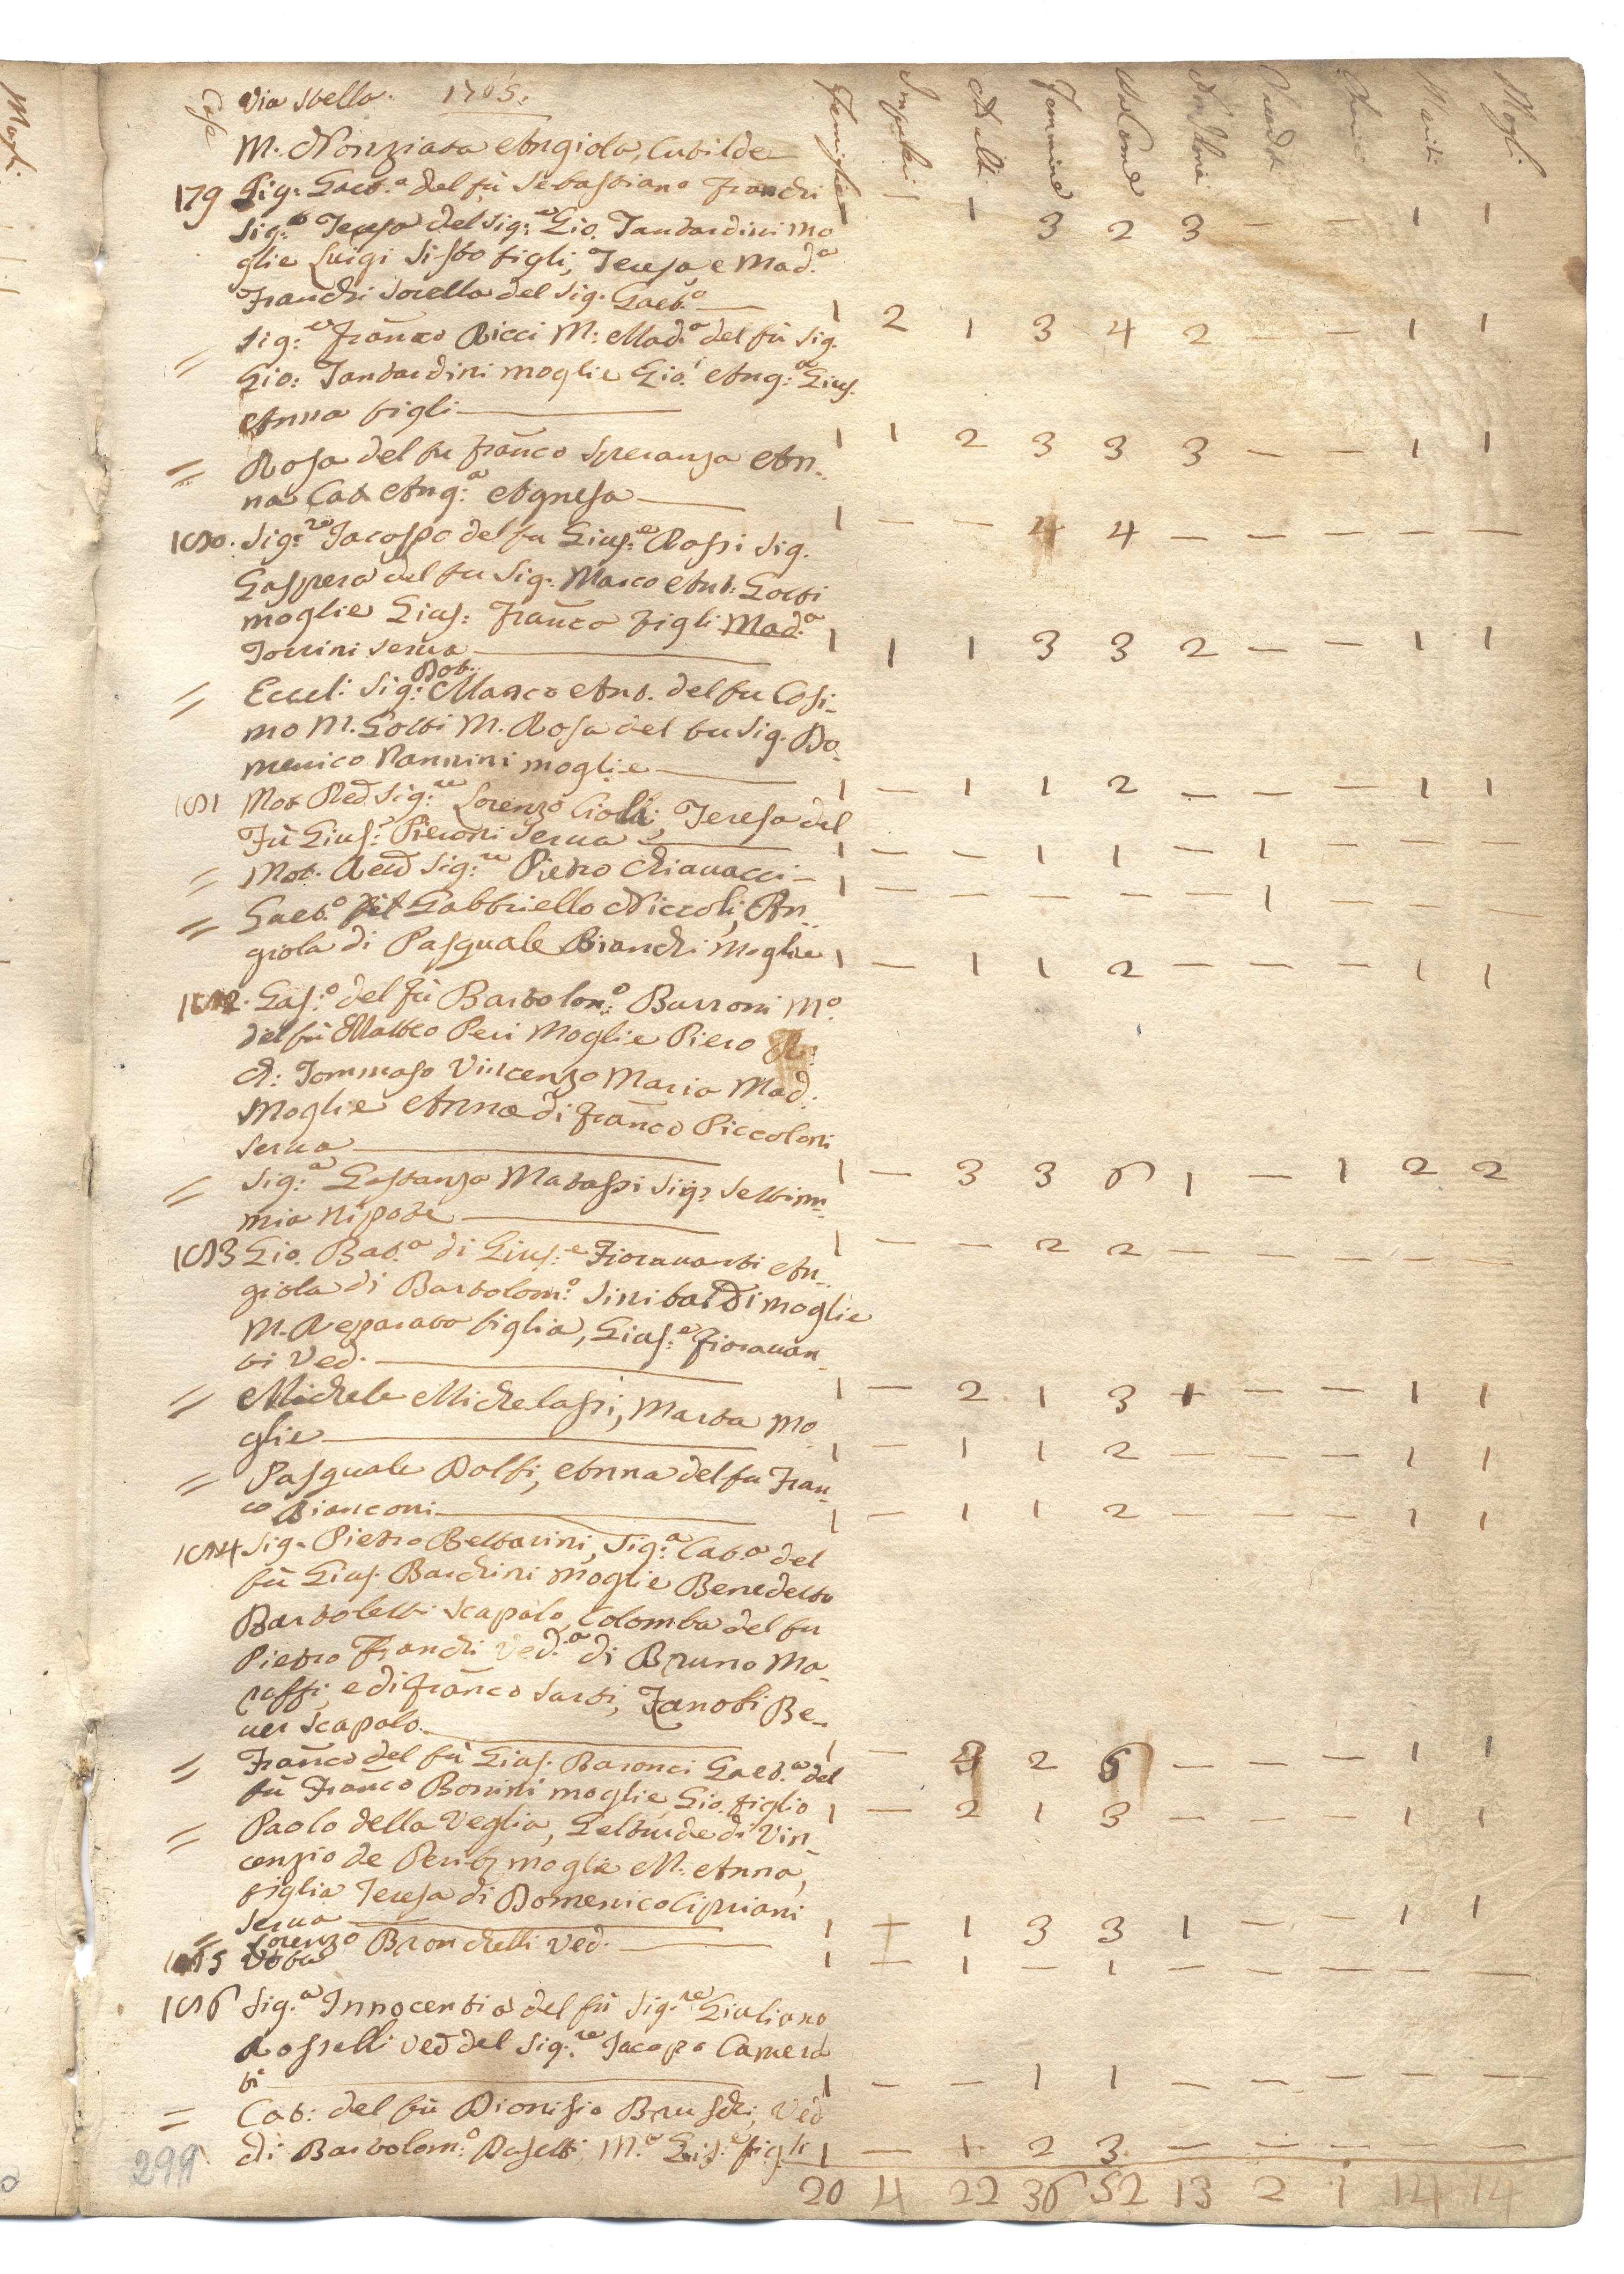 Case Via Stella. 1765. Famiglie Impuberi Adulti Femmine Mariti Mogli
M. Nonziata Angiola, Catilde
179 Sig. Gaet.º del fù Sebastiano Franchi — 1 3 2 3 — — 1 1
Sig.ª Teresa del Sig.re Gio. Tantardini mo
glie Luigi Sisto figli, Teresa, e Mad.ª
Franchi Sorella del Sig. Gaet.º — 1 2 1 3 4 2 — — 1 1
= Sig.re Franco Ricci M: Mad.ª del fù Sig.
Gio: Tantardini moglie Gio: Ang:ª Gius.
Anna figli — 1 1 2 3 3 3 — — 1 1
= Rosa del fu Franco Speranza An-
na Cat Ang:ª Agnesa — 1 — — 4 4 — — — — —
180. Sig:re Jacopo del fu Gius:e Rossi Sig.
Gaspera del fu Sig. Marco Ant: Gotti
moglie Gius: Franco figli Mad.ª
Torrini serva — 1 1 1 3 3 2 — — 1 1
= Eccel: Sig: Dot. Marco Ant. del fu Cosi-
mo M. Gotti M. Rosa del fu Sig. Do-
menico Nannini moglie — 1 — 1 1 2 — — — 1 1
181 Mot Red Sig:re Lorenzo Cioli; Teresa del
Fù Gius: Pieroni Serva — 1 — — 1 1 — 1 — — —
= Mot. Red Sig:re Pietro Chiavacci — 1 — — — — — 1 — — —
= Gaet.º Gabbriello Niccoli, An-
giola di Pasquale Bianchi Moglie 1 — 1 1 2 — — — 1 1
182. Gas:º del fù Bartolom:º Burroni M.º
del fù Matteo Peri Moglie Piero
A: Tommaso Vincenzo Maria Mad.
Moglie Anna di Franco Piccoloni
serva — 1 — 3 3 6 1 — 1 2 2
= Sig:ª Gostanza Matassi Sig: Settim-
mia nipote — 1 — — 2 2 — — — — —
183 Gio. Bat.ª di Gius:e Fioravanti An-
giola di Bartolom:º Sinibaldi moglie
M. Reparata figlia, Gius:e Fioravan-
ti Ved. — 1 — 2 1 3 + — — 1 1
= Michele Michelassi, Marta mo-
glie — 1 — 1 1 2 — — — 1 1
= Pasquale Dolfi, Anna del fu Fran-
co Bianconi — 1 — 1 1 2 — — — 1 1
184 Sig. Pietro Beltarini, Sig:ª Cat.ª del
fù Gius. Banchini moglie Benedetto
Bartoletti Scapolo, Colomba del fu
Pietro Franchi Ved.ª di Bruno Ma-
raffi, e di Franco Sarti, Zanobi Be-
ner Scapolo. — 1 — 2 6 — — — 1 1
= Franco del fù Gius. Baronci Gaet.ª del
fù Franco Bonini moglie, Gio. figlio 1 — 2 1 3 — — — 1 1
= Paolo della Veglia, Geltrude di Vin-
cenzio de moglie M. Anna,
figlia Teresa di Domenico Cipriani
Serva — 1 + 1 3 3 1 — — 1 1
= Lorenzo Bronchelli Ved. — 1 ± 1 — 1 — — — — —
185 Vota
186 Sig.ª Innocentia del fù Sig.re Giuliano
Rosselli Ved del Sig.re Jacopo Camera
ti — 1 — — 1 1 — — — — —
= Cat: del fù Dionisio Bruschi, Ved
di Bartolom:º Pasetti, M.ª Gius:e figli 1 — + 2 3 — — — — —
299 20 4 22 36 52 13 2 1 14 14
Mogli